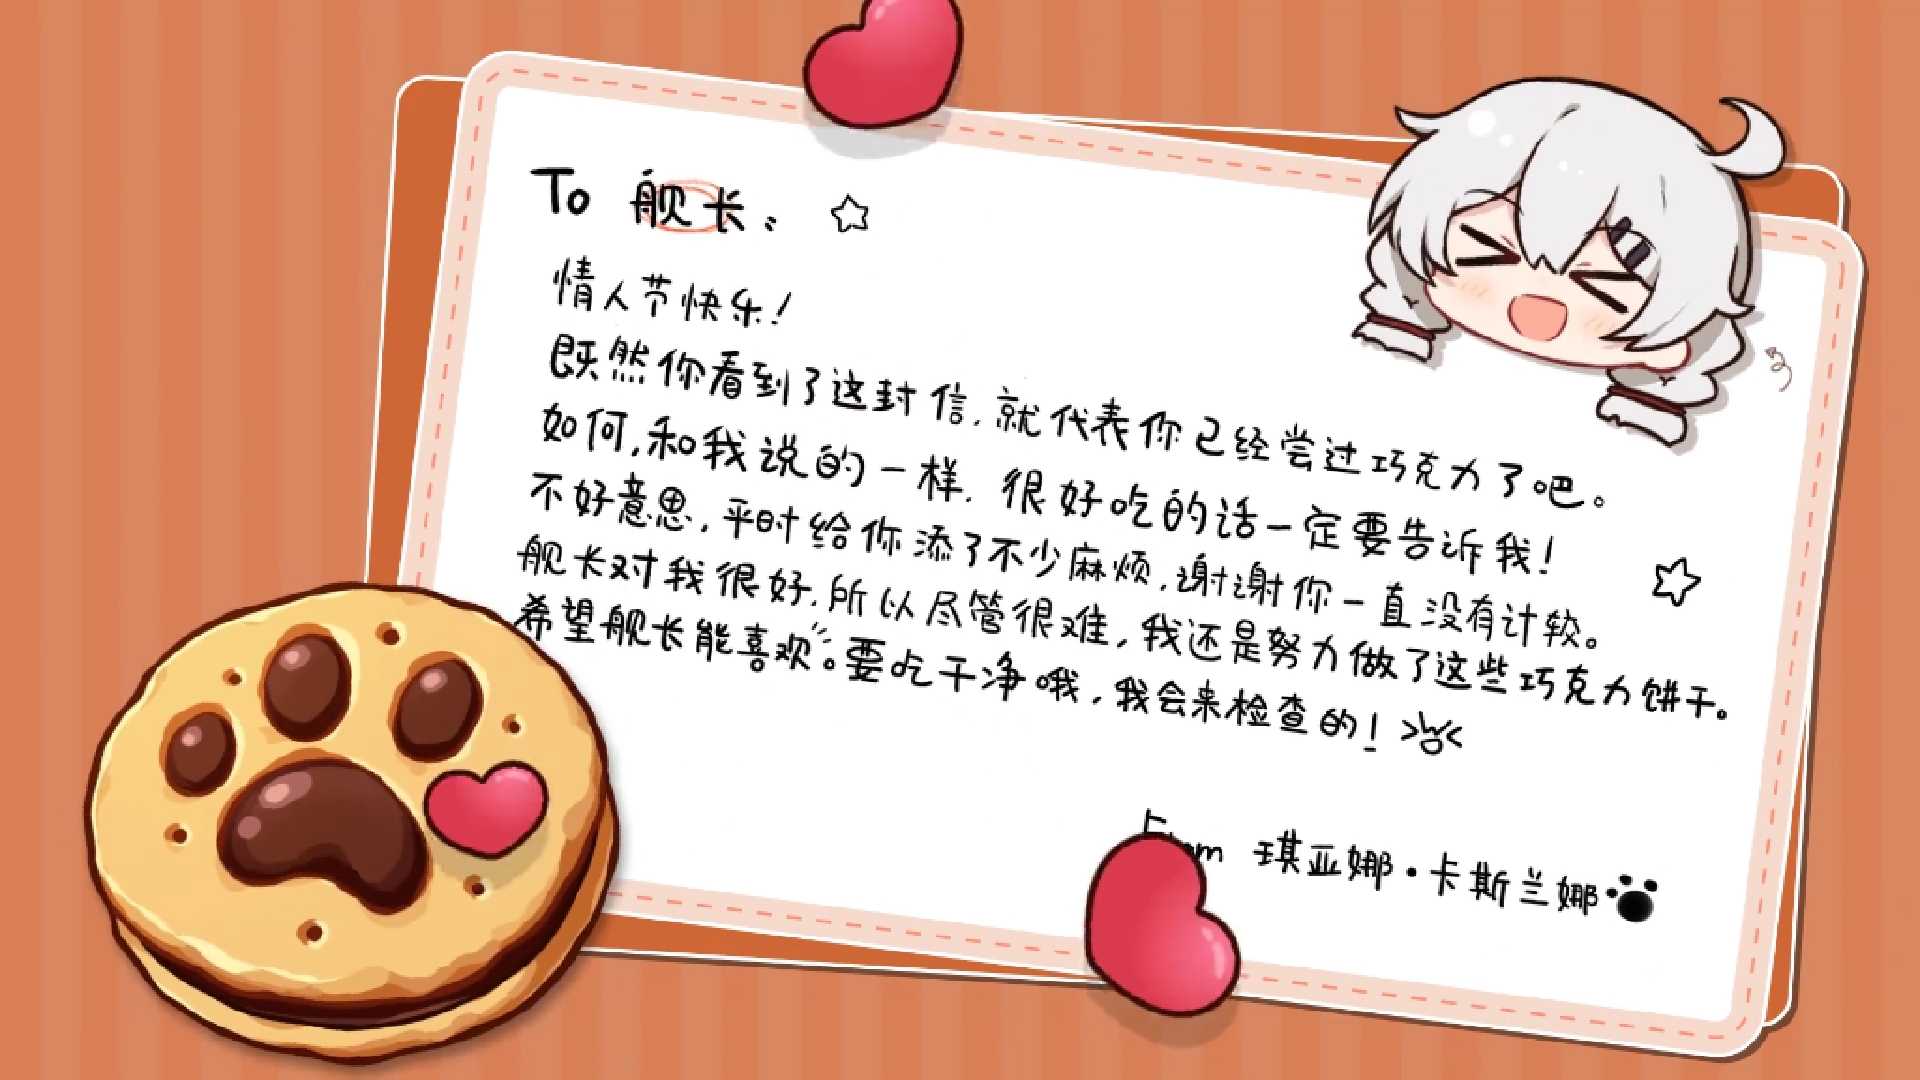 To 舰长：
情人节快乐！
既然你看到了这封信，就代表你已经尝过巧克力了吧。
如何，和我说的一样，很好吃的话一定要告诉我！
不好意思，平时给你添了不少麻烦，谢谢你一直没有计较。
舰长对我很好，所以尽管很难，我还是努力做了这些巧克力饼干。
希望舰长能喜欢。要吃干净哦，我会来检查的！
From 琪亚娜·卡斯兰娜